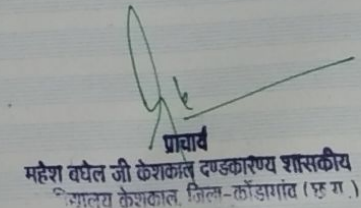 प्राचार्य
महेश बघेल जी केशकाल दण्डकारण्य शासकीय
केशकाल, जिला-कोंडागांव (छ ग.)